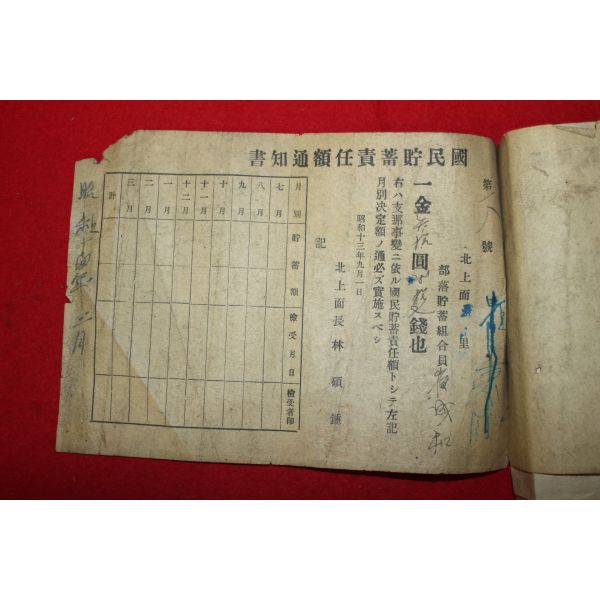 國民貯蓄責任額通知書
第 八 號
北上面 里
部落貯蓄組合員
一金 圓 錢也
右ハ支那事變ニ依ル國民貯蓄責任額トシテ左記
月別決定額ノ通必ズ實施スベシ
昭和十三年九月一日
北上面長 林 碩 鍾
記
月別 貯蓄額 檢受月日 檢受者印
七月
八月
九月
十月
十一月
十二月
一月
二月
三月
計
昭和十四年二月